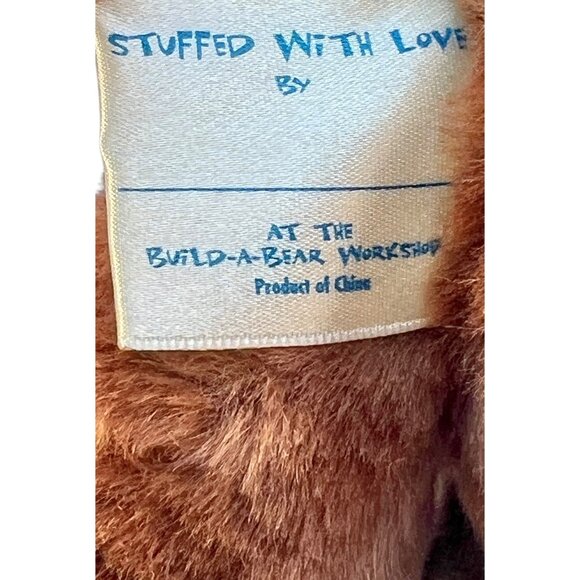 STUFFED WITH LOVE
BY
AT THE
BUILD-A-BEAR WORKSHOP
Product of China